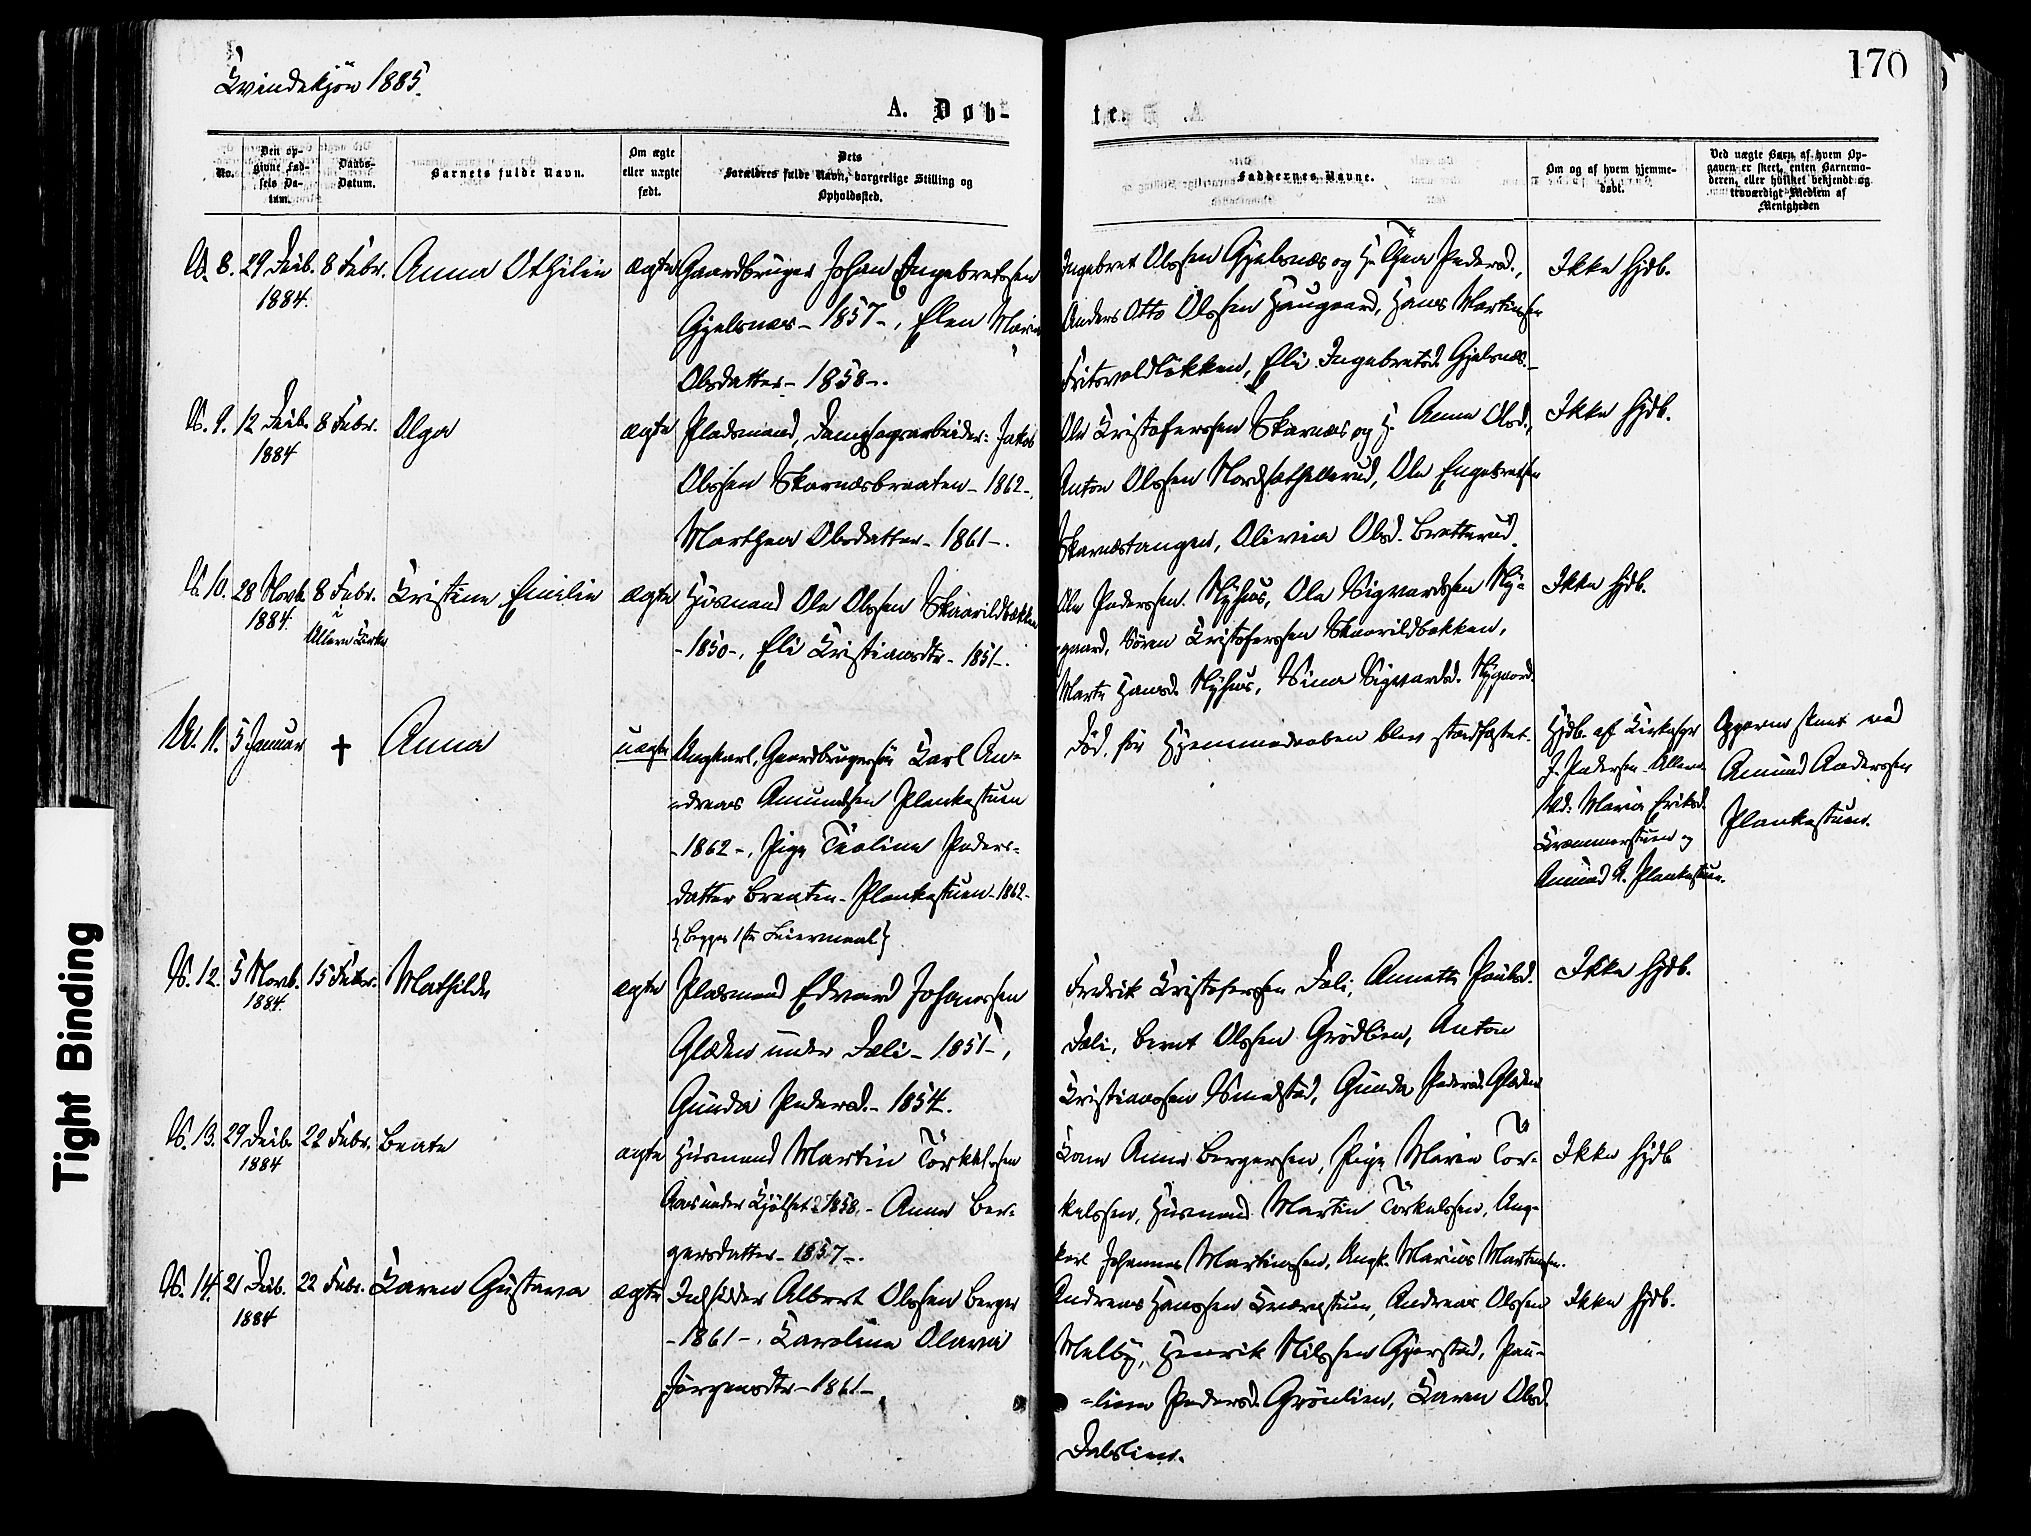 170
Kvindekjön 1885.
A. Døb-
te.
No.
Den op-
givne Fød-
sels Da-
tum.
Daabs-
Datum.
Barnets fulde Navn.
Om ægte
eller uægte
født.
Dets
Forældres fulde Navn, borgerlige Stilling og
Opholdssted.
Faddernes Navne.
Om og af hvem hjemme-
døbt.
Ved uægte Barn, af hvem Op-
gaven er skeet, enten Barnemo-
deren, eller hvilket bekjendt og
troværdigt Medlem af
Menigheden
8. 29 Decb. 8 Febr. Anna Othilie ægte Gaardbruger Johan Engebretssen
1884.
Gjelsnæs - 1857 -, Elen Marie
Olsdatter - 1858 -.
Ingebret Olssen Gjelsnæs og H. Thea Pedersd.,
Anders Otto Olssen Haugaard, Hans Martinssen
Fritsvoldløkken, Eli Ingebretsd. Gjelsnæs.
Ikke Hjdb.
9. 12 Decb. 8 Febr. Olga ægte Pladsmand, Dampsagarbeider: Jakob
1884
Olssen Skarnæsbraaten - 1862 -,
Marthea Olsdatter - 1861 -.
Ole Kristoferssen Skarnæs og H. Anne Olsd.,
Anton Olssen, Ole Engebretsen
Skarnæstangen, Olivia Olsd. Bratterud.
Ikke Hjdb.
10. 28 Novb. 8 Febr. Kristine Emilie ægte Husmand Ole Olssen Skaarildbakken
1884. i
Ullern Kirke
- 1850 -, Eli Kristiansdtr - 1851 -.
Ole Pederssen Nyhus, Ole Sigvardssen Ny-
gaard, Sören Kristoferssen Skaarildbakken,
Marte Hansd. Nyhus, Sina Sigvardsd. Nygaard.
Ikke Hjdb.
11. 5 Januar † Anna uægte Ungkarl, Gaardbrugersön Karl An-
=dreas Amundsen Plankestuen
- 1862 -, Pige Teoline Peders-
datter Braaten - Plankestuen - 1862 -
{Begges 1ste Leiermaal}
Död, för Hjemmedaaben blev stadfæstet.
Hjdb. af Kirkesgr
J. Pedersen Ullern.
Vd: Maria Eriksd.
Kræmmerstuen og
Amund A. Plankestuen.
Opgaven skeet ved
Amund Anderssen
Plankestuen.
12. 5 Novb. 15 Febr. Mathilde ægte Pladsmand Edvard Johanssen
1884.
Glæden under Dæli - 1851 -,
Gunda Pedersd. - 1854.
Fredrik Kristoferssen Dæli, Annette Paulsd.
Dæli, Bernt Olssen Grödlien, Anton
Kristianssen Smedstad, Gunda Pedersd. Glæden
Ikke Hjdb.
13. 29 Decb. 22 Febr. Beate ægte Husmand Martin Törkelssen
1884
Aas under Kjölset - 1858. - Anne Ber-
gersdatter - 1857 -.
Kone Anne Bergersen, Pige Marie Tor-
kelssen, Husmand Martin Törkelssen, Ung-
karl Johannes Martinssen, Ungk. Marius Martinsen.
Ikke Hjdb
14. 21 Decb. 22 Febr. Karen Gustava ægte Indsidder Albert Olssen Berger
1884
- 1861 -, Karoline Olava
Jörgensdtr - 1861 -
Andreas Hanssen Kværnstuen, Andreas Olssen
Melby, Henrik Nilssen Gjerstad, Pau-
=line Pedersd. Grönlien, Karen Olsd.
Dalslien.
Ikke Hjdb.
Tight Binding